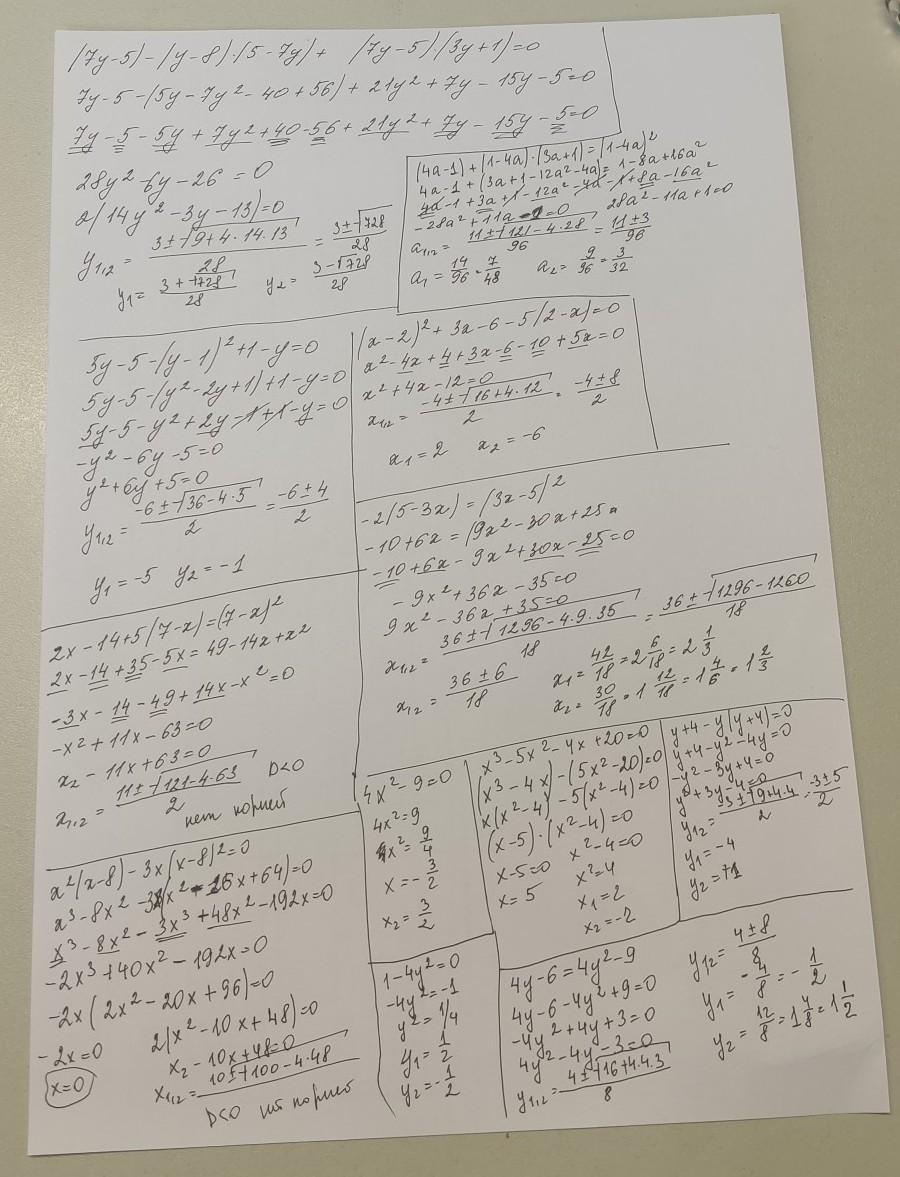 (7y-5)-(y-8)·(5-7y)+ (7y-5)·(3y+1)=0
7y-5-(5y-7y²-40+56)+21y²+7y-15y-5=0
7y-5-5y+7y²+40-56+21y²+7y-15y-5=0
28y²-6y-26=0
2(14y²-3y-13)=0
y₁,₂ = (3±√(9+4·14·13))/28 = (3±√728)/28
y₁= (3+√728)/28 y₂= (3-√728)/28
(4a-1)+(1-4a)·(3a+1)=(1-4a)²
4a-1+(3a+1-12a²-4a)=1-8a+16a²
4a-1+3a+1-12a²-4a-1+8a-16a²
-28a²+11a-1=0 28a²-11a+1=0
a₁,₂= (11±√(121-4·28))/96 = (11±3)/96
a₁= 14/96=7/48 a₂= 9/96=3/32
5y-5-(y-1)²+1-y=0
5y-5-(y²-2y+1)+1-y=0
5y-5-y²+2y-1+1-y=0
-y²-6y-5=0
y²+6y+5=0
y₁,₂= (-6±√(36-4·5))/2 = (-6±4)/2
y₁=-5 y₂=-1
(x-2)²+3x-6-5(2-x)=0
x²-4x+4+3x-6-10+5x=0
x²+4x-12=0
x₁,₂= (-4±√(16+4·12))/2 = (-4±8)/2
x₁=2 x₂=-6
-2(5-3x)=(3x-5)²
-10+6x=(9x²-30x+25
-10+6x-9x²+30x-25=0
-9x²+36x-35=0
9x²-36x+35=0
x₁,₂= (36±√(1296-4·9·35))/18 = (36±√(1296-1260))/18
x₁,₂= (36±6)/18
x₁= 42/18=2 6/18=2 1/3
x₂= 30/18=1 12/18=1 4/6=1 2/3
2x-14+5(7-x)=(7-x)²
2x-14+35-5x=49-14x+x²
-3x-14-49+14x-x²=0
-x²+11x-63=0
x₂-11x+63=0
x₁,₂= (11±√(121-4·63))/2 D<0
нет корней
4x²-9=0
4x²=9
x²= 9/4
x=-3/2
x₂=3/2
x³-5x²-4x+20=0
(x³-4x)-(5x²-20)=0
x(x²-4)-5(x²-4)=0
(x-5)·(x²-4)=0
x-5=0 x²-4=0
x=5 x²=4
x₁=2
x₂=-2
y+4-y(y+4)=0
y+4-y²-4y=0
-y²-3y+4=0
y²+3y-4=0
y₁₂= (-3±√(9+4·4))/2 = (-3±5)/2
y₁=-4
y₂=+1
x²(x-8)-3x(x-8)²=0
x³-8x²-3x(x²-16x+64)=0
x³-8x²-3x³+48x²-192x=0
-2x³+40x²-192x=0
-2x(2x²-20x+96)=0
-2x=0 2(x²-10x+48)=0
x=0 x₂-10x+48=0
x₁,₂= 10±√100-4·48
D<0 нет корней
1-4y²=0
-4y²=-1
y²=1/4
y₁=1/2
y₂=-1/2
4y-6=4y²-9
4y-6-4y²+9=0
-4y²+4y+3=0
4y²-4y-3=0
y₁,₂= (4±√(16+4·4·3))/8
y₁₂= (4±8)/8
y₁= -4/8=-1/2
y₂= 12/8=1 4/8=1 1/2